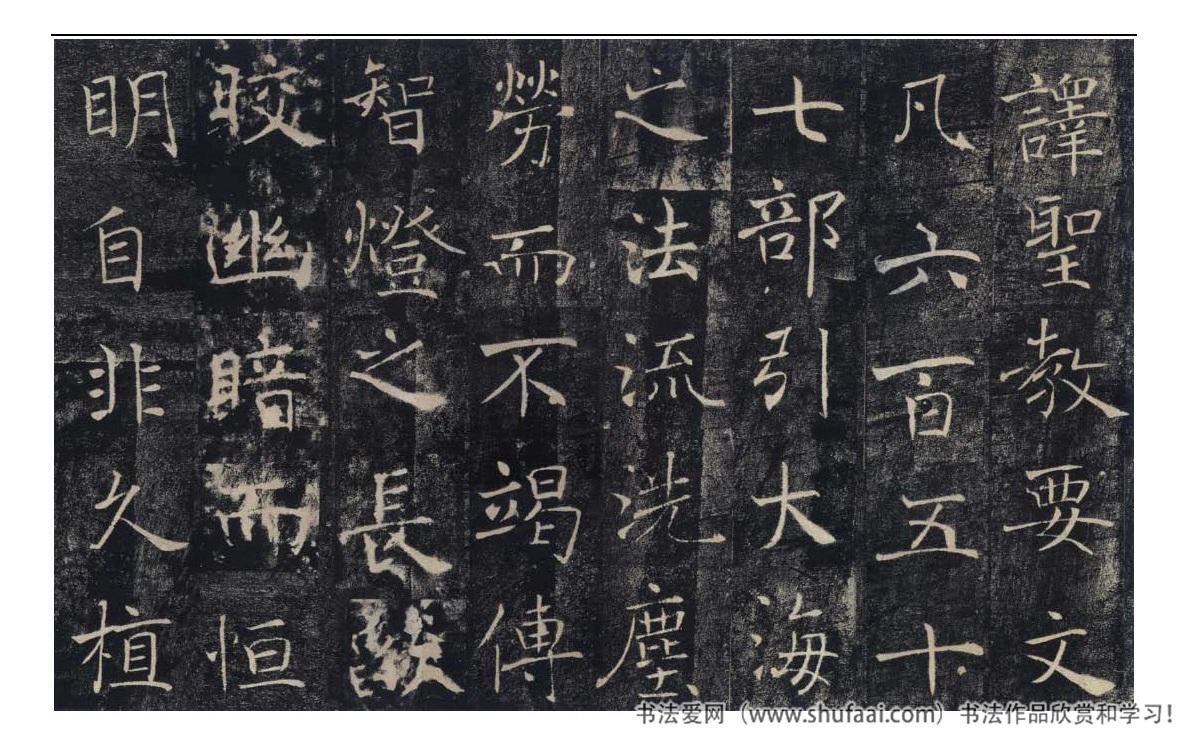 譯聖教要文
凡六百五十
七部引大海
之法流洗塵
勞而不竭傳
智燈之長燄
皎幽暗而恒
明自非久植
书法爱网（www.shufaai.com）书法作品欣赏和学习！